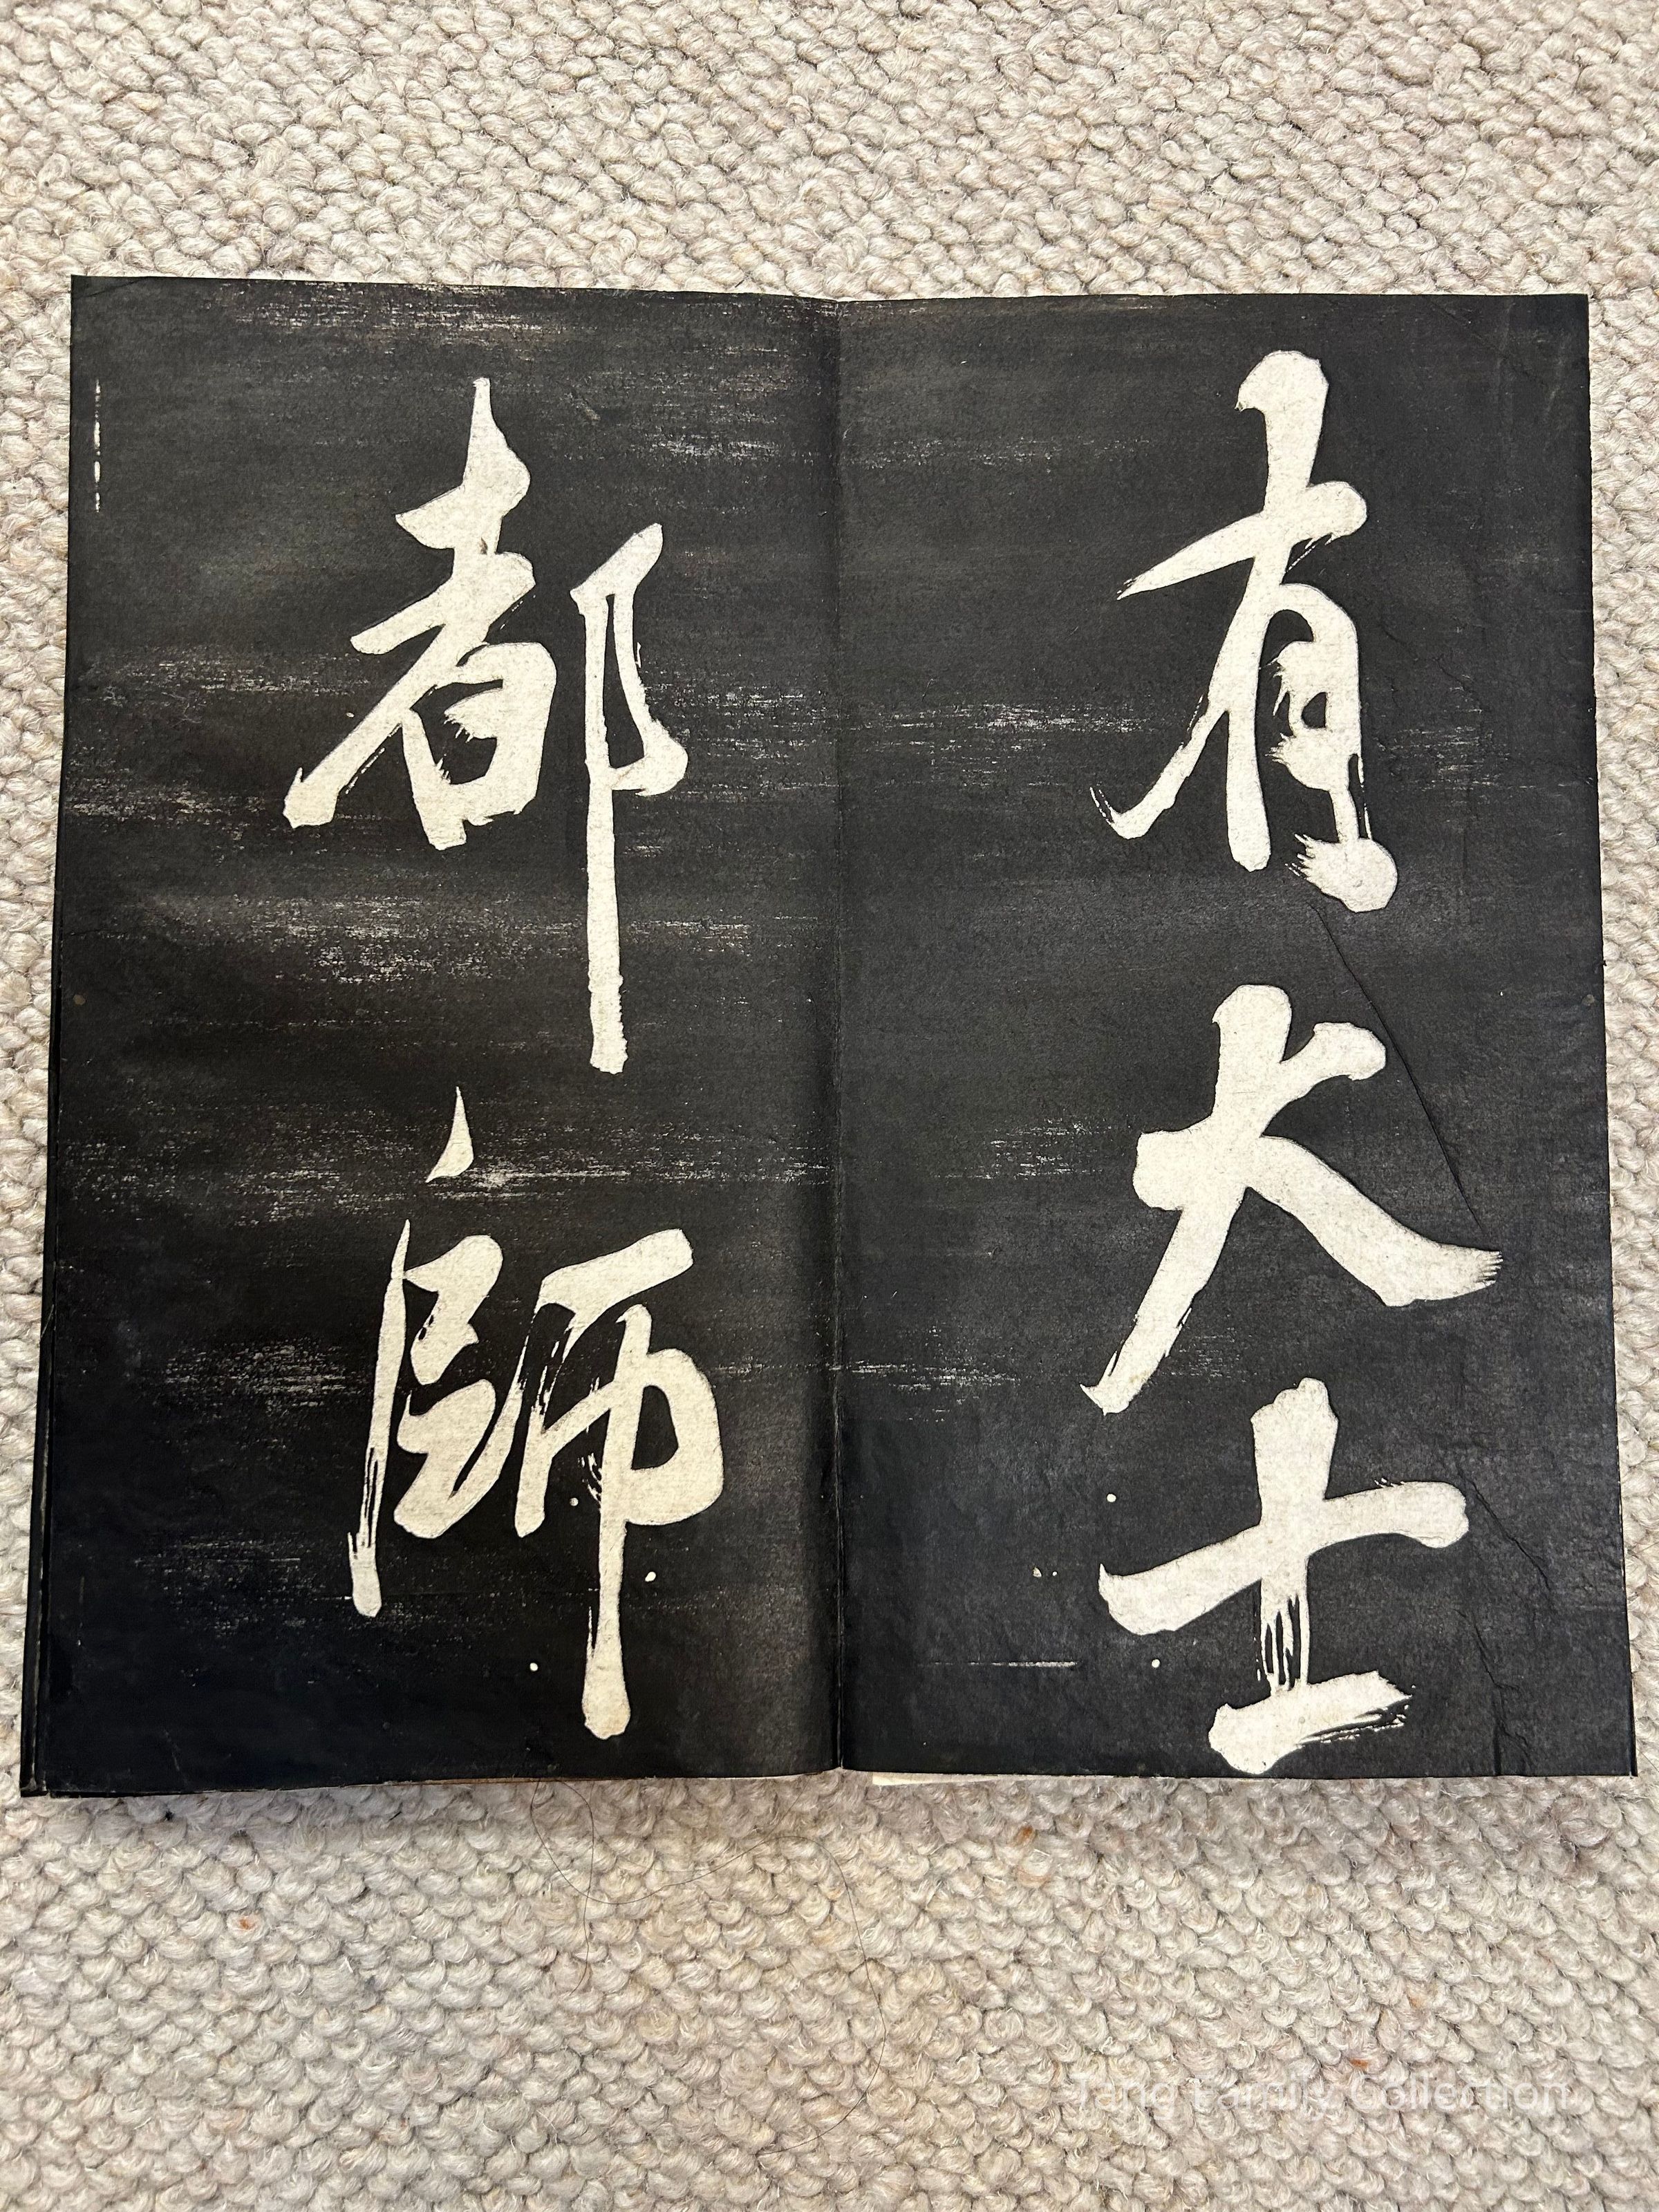 有大士
都師
Tang Family Collection